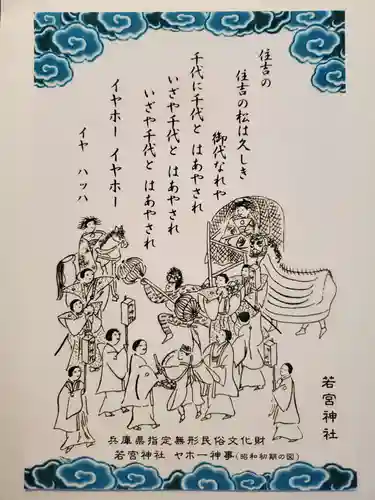 住吉の
住吉の松は久しき
御代なれや
千代に千代と はあやされ
いざや千代と はあやされ
いざや千代と はあやされ
イヤホー イヤホー
イヤ ハッハ
若宮神社
兵庫県指定無形民俗文化財
若宮神社 ヤホー神事(昭和初期の図)